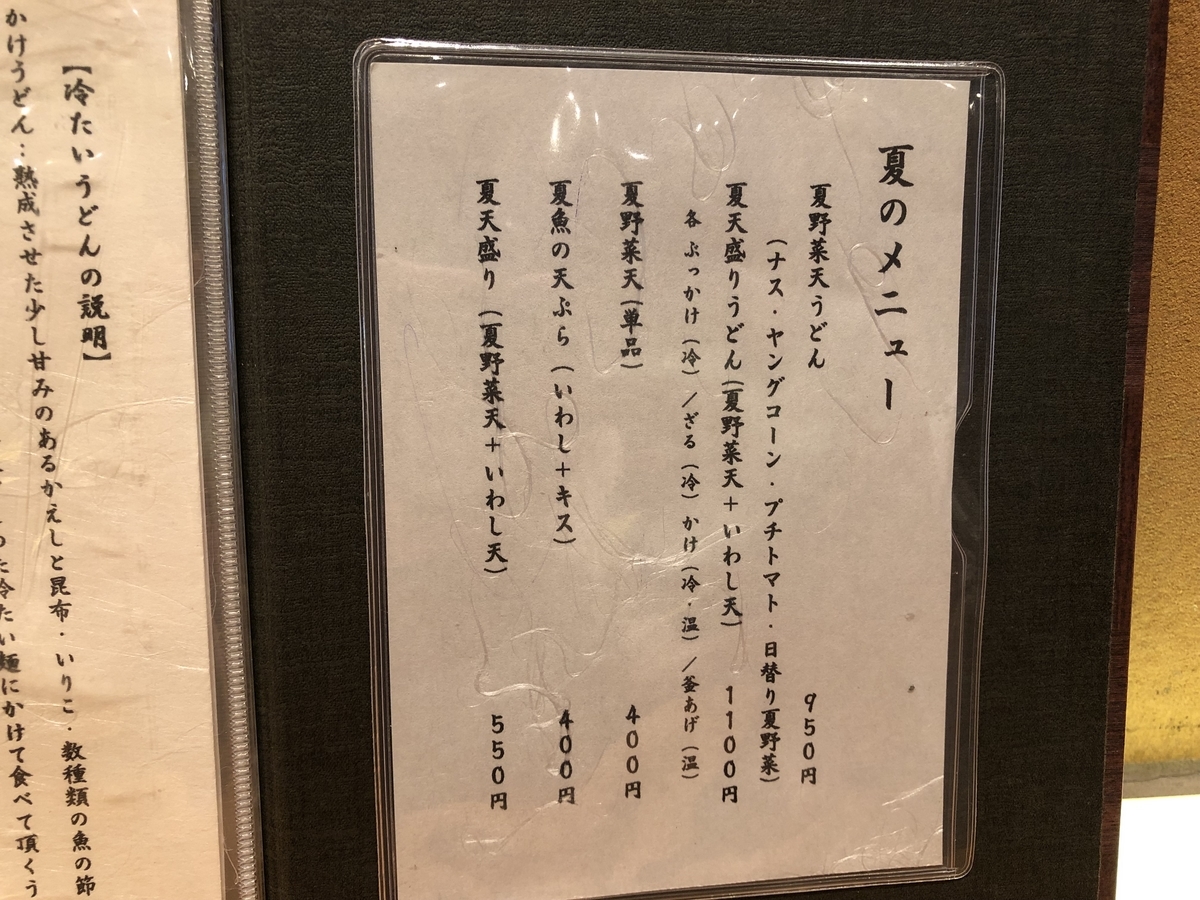 夏のメニュー
夏野菜天うどん 950円
(ナス・ヤングコーン・プチトマト・日替り夏野菜)
夏天盛りうどん(夏野菜天+いわし天) 1100円
各 ぶっかけ(冷)/ざる(冷)かけ(冷・温)/釜あげ(温)
夏野菜天(単品) 400円
夏魚の天ぷら(いわし+キス) 400円
夏天盛り(夏野菜天+いわし天) 550円
【冷たいうどんの説明】
かけうどん…熟成させた少し甘みのあるかえしと昆布・いりこ・数種類の魚の節
た冷たい麺にかけて食べて頂くう